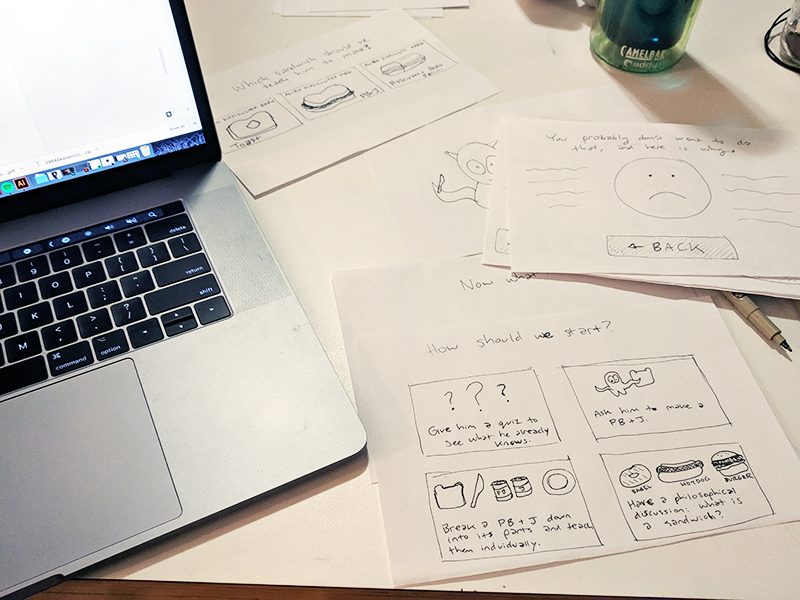 Which sandwich should we
teach him to make?
Toast
PB+J
CAMELBAK
eddy
You probably don't want to do
that, and here is why.
← BACK
Now what
How should we start?
? ? ?
Give him a quiz to
see what he already
knows.
Ask him to make a
PB+J.
Break a PB+J down
into its parts and teach
them indivdually.
BAGEL
HOTDOG
BURGER
Have a philosophical
discussion: what is
a sandwich?
Ai
delete
return
shift
command
option
9
0
I
O
P
K
L
M